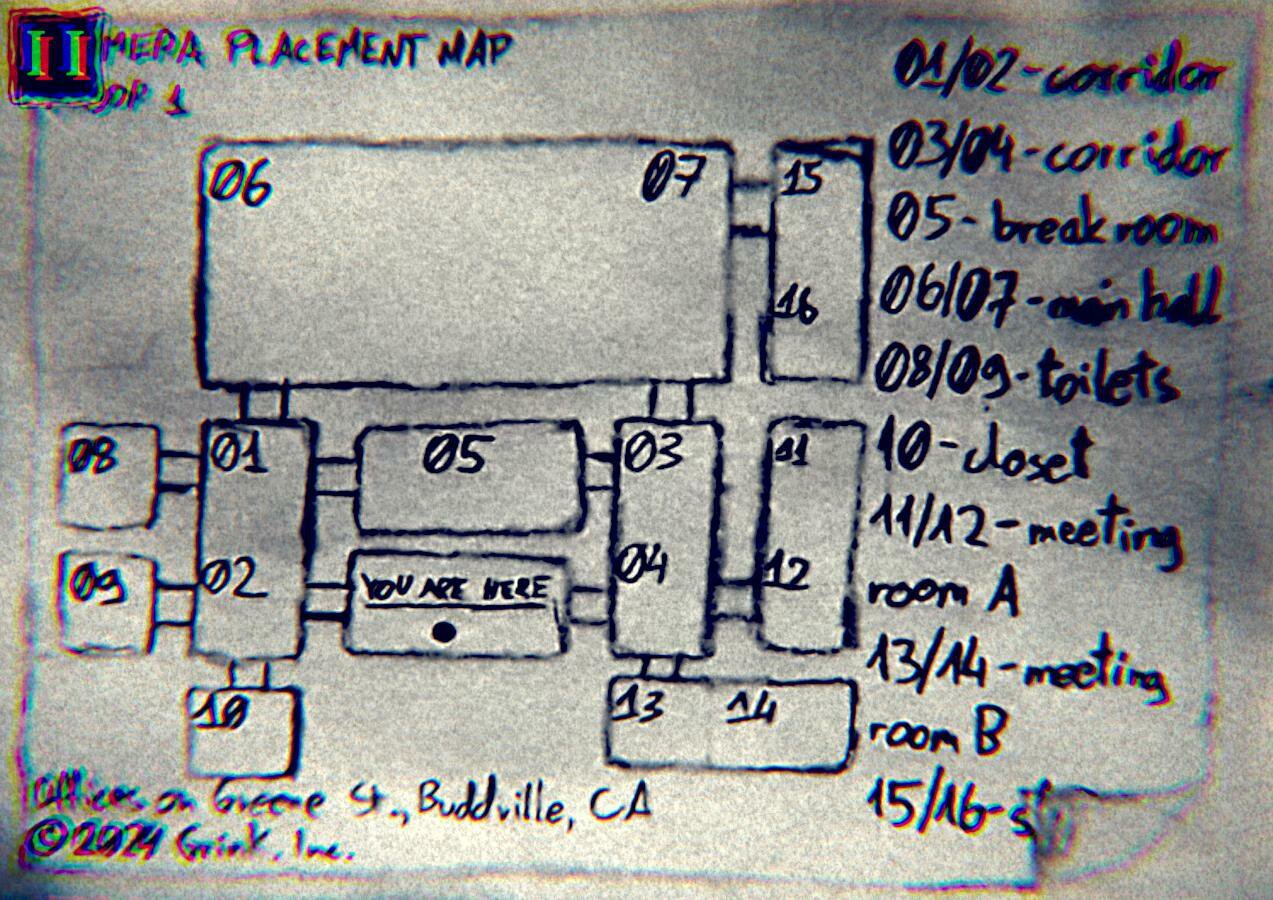 II
MERA PLACEMENT MAP
1
01/02-corridor
03/04-corridor
05-break room
06/07-main hall
08/09-toilets
10-closet
11/12-meeting
room A
13/14-meeting
room B
15/16-s
06
07
15
16
08
01
05
03
11
09
02
YOU ARE HERE
04
12
10
13
14
Offices on Greene St., Buddville, CA
©2024 Grink, Inc.